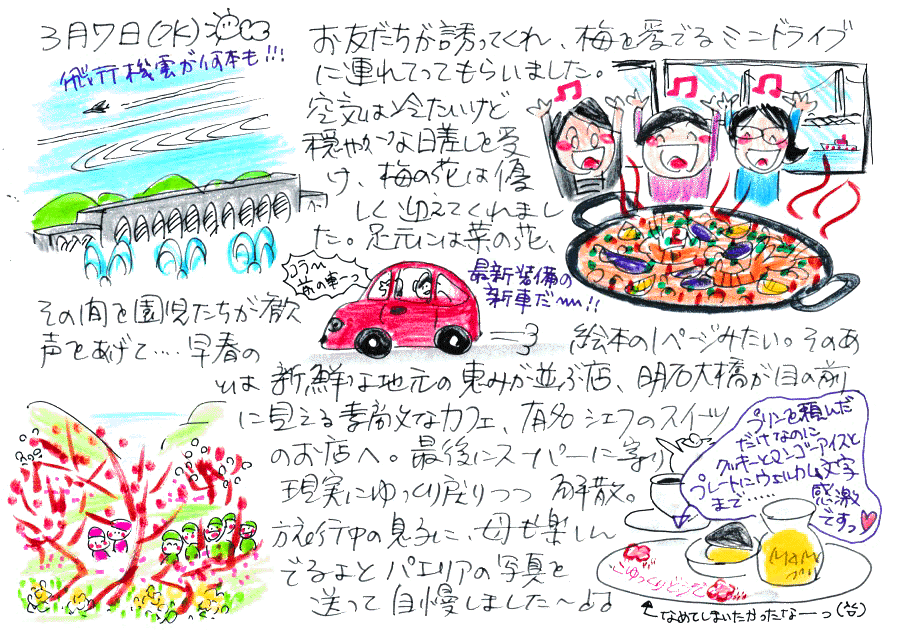 3月7日(水)
飛行機雲が何本も!!!
お友だちが誘ってくれ、梅を愛でるミニドライブ
に連れてってもらいました。
空気は冷たいけど
穏やかな日差しを受
け、梅の花は優
しく迎えてくれまし
た。足元には菜の花、
コラ〜
前の車〜っ
最新装備の
新車だ〜!!
その間を園児たちが歓
声をあげて‥‥早春の
絵本の1ページみたい。そのあ
とは 新鮮な地元の恵みが並ぶ店、明石大橋が目の前
に見える素敵なカフェ、有名シェフのスイーツ
のお店へ。最後にスーパーに寄り
現実にゆっくり戻りつつ 解散。
旅行中の息子に、母も楽しん
でるよとパエリアの写真を
送って自慢しました〜よよ
プリンを頼んだ
だけなのに
クッキーとマンゴーアイスと
プレートにウェルカム文字
まで‥‥‥
感激
ですっ
ごゆっくりどうぞ
↑なめてしまいたかったなーっ(笑)